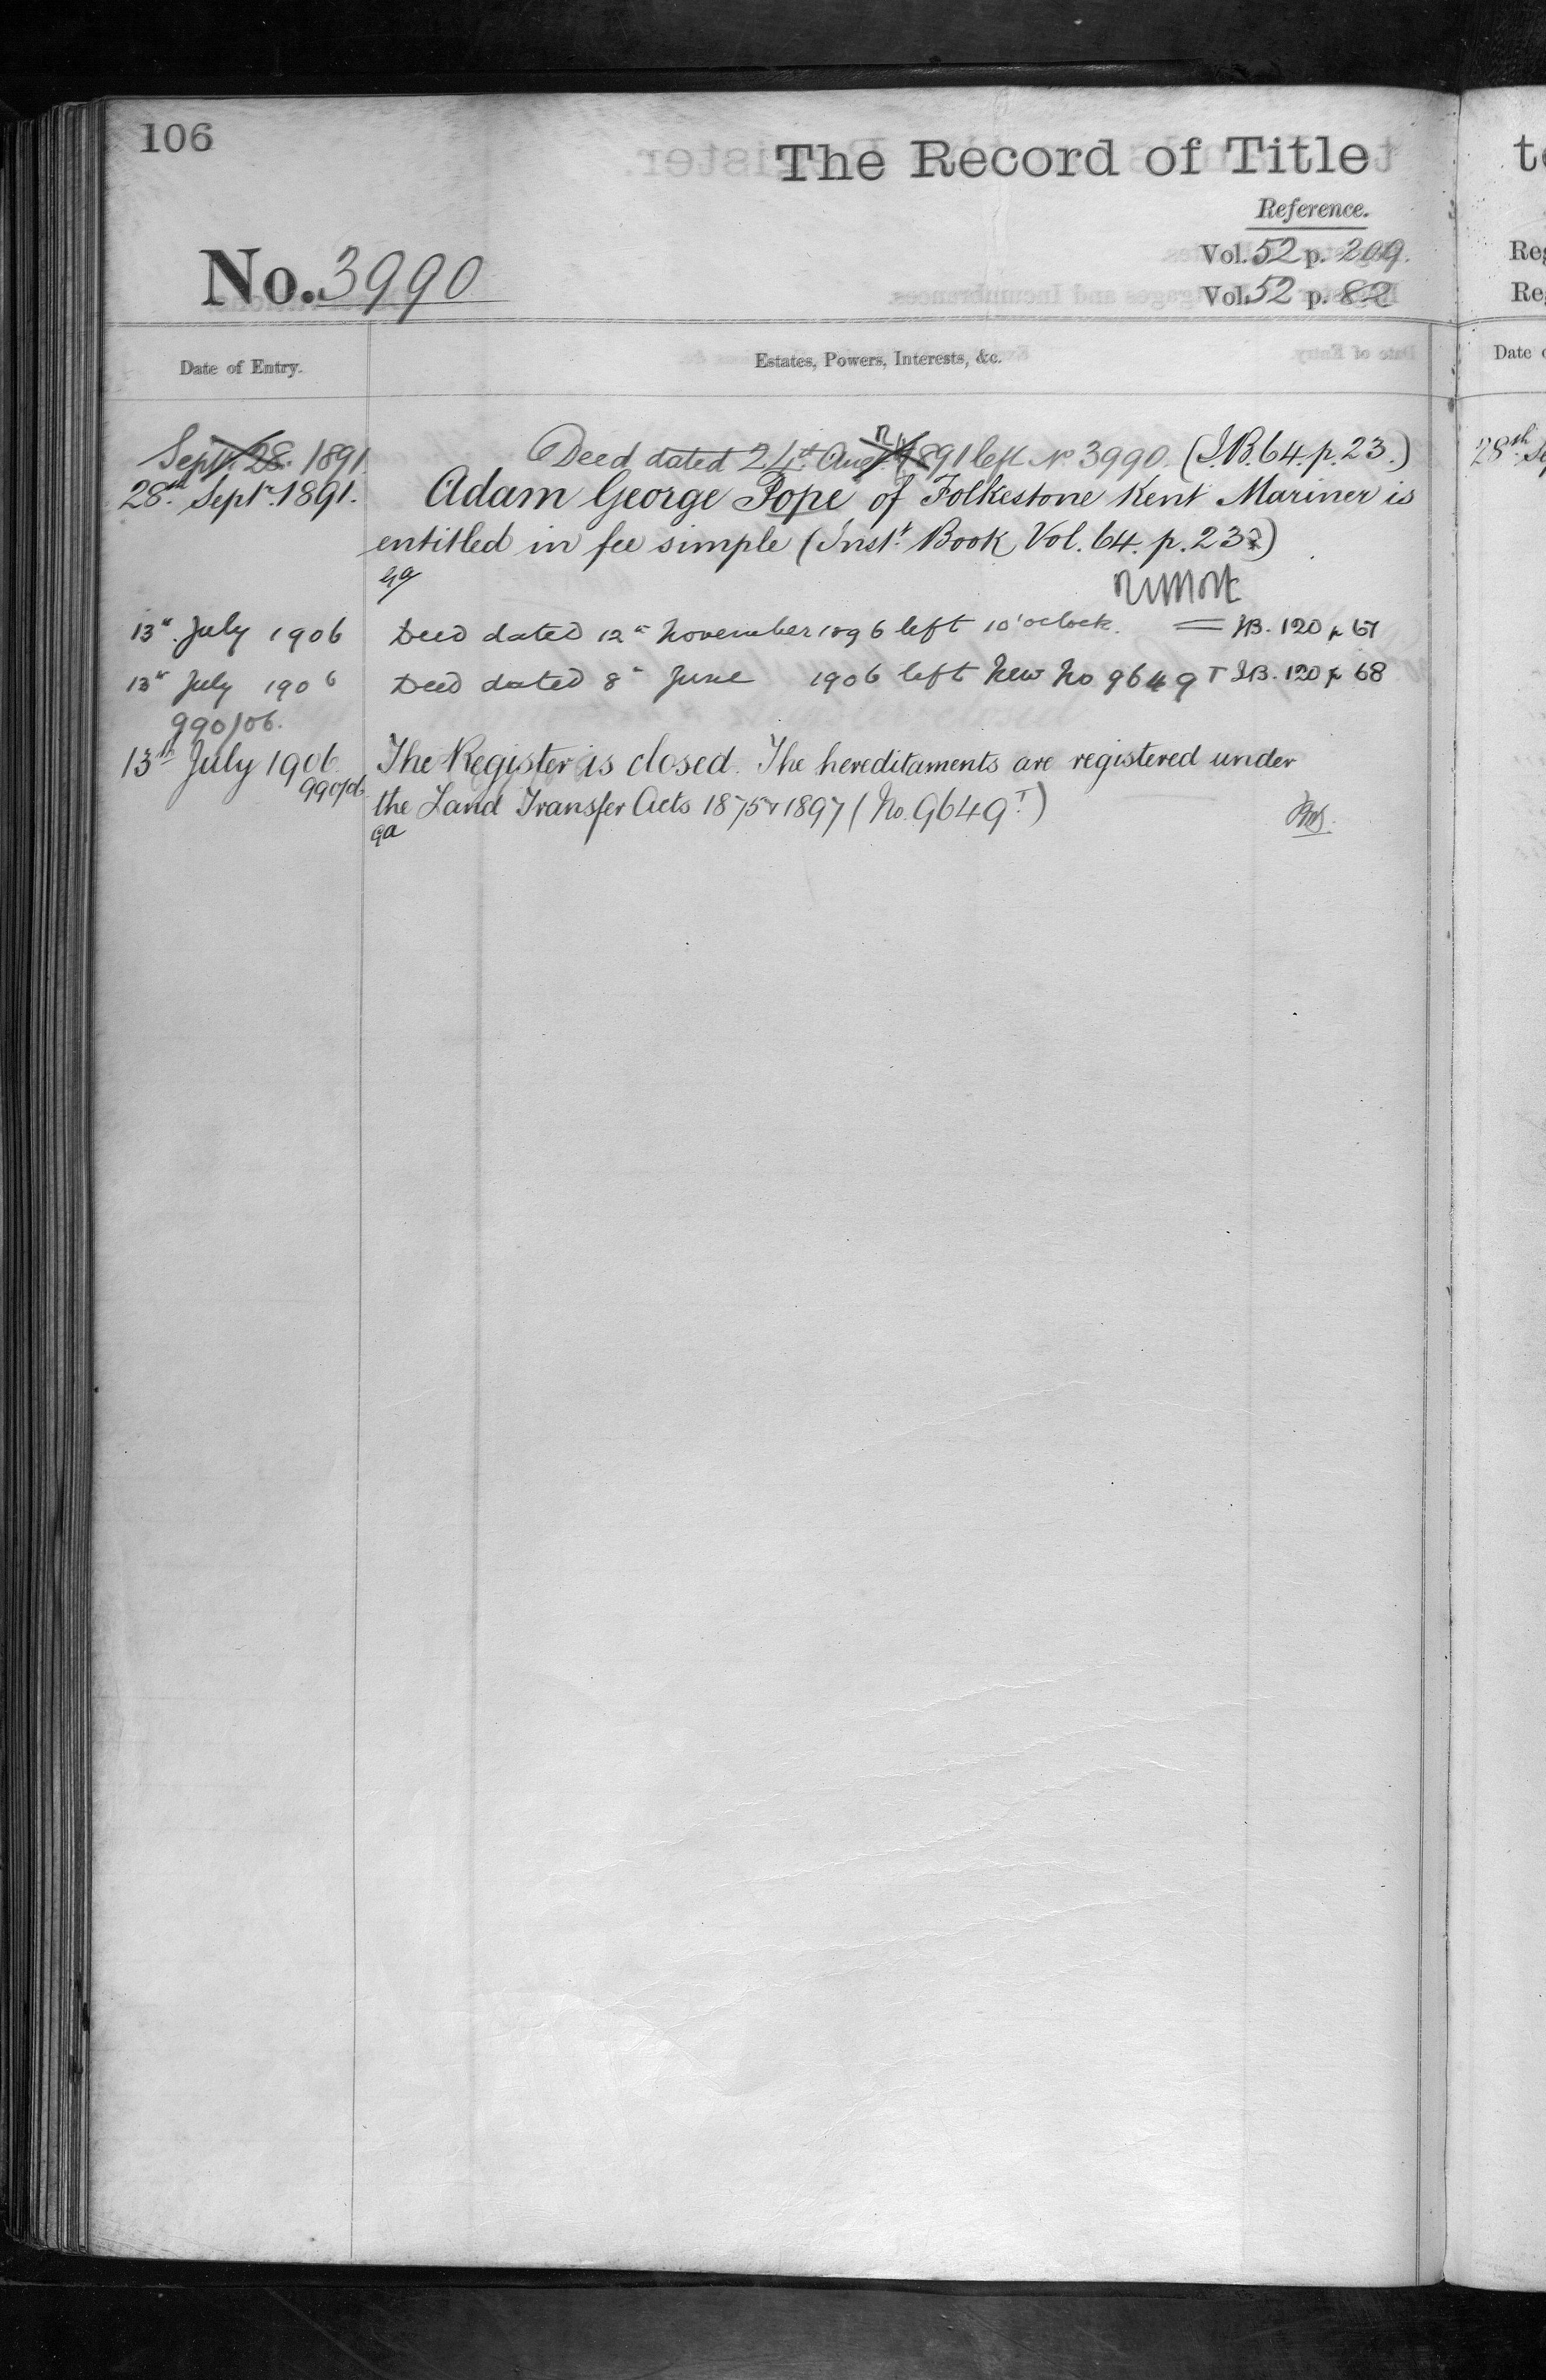 106
The Record of Title
Reference.
No. 3990
Vol. 52 p. 209.
Vol. 52 p. 82
Date of Entry.
Estates, Powers, Interests, &c.
Sept. 28. 1891.
Deed dated 24th Augt. 1891 left No 3990. (I.B. 64. p. 23.)
28th Septr. 1891.
Adam George Pope of Folkestone Kent Mariner is
entitled in fee simple (Inst. Book Vol. 64. p. 23)
ga
13th July 1906
Deed dated 12th November 1896 left 10 'oclock. = IB. 120 p 67
13th July 1906
Deed dated 8th June 1906 left New No 9649 T IB. 120 p 68
990/06.
13th July 1906
The Register is closed. The hereditaments are registered under
990/06
the Land Transfer Acts 1875 & 1897 (No. 9649 T.)
ga
Date
28th